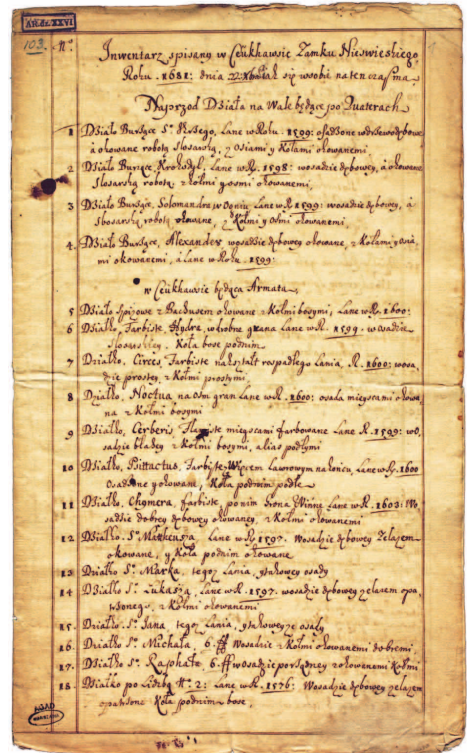 AR dz. XXVI
103.
N°
Inwentarz spisany w Ceukhawsie Zamku Nieswieskiego
Roku . 1681: dnia się wsobie natenczas ma
Naprzod Działa na Wale będące po Quaterach
1 Działo Burzące S°. Lane w Roku . 1599: osadzone wdrzewo dębowe
á okowane robotą Slosarską, z Osiami y Kołami okowanemi.
2 Działo Burzące, Krokodyl, Lane w R. 1598: wosadzie dębowey, á okowane
Slosarską robotą, z Kołmi y osmi okowanemi.
3 Działo Burzące, Salomandra w Ogniu Lane w R. 1599: wosadzie dębowey, á
Slosarską robotą okowane, z Kołmi y Osmi okowanemi.
4. Działo Burzące, Alexander wosadzie dębowey okowane, z Kołami y Osia,
mi okowanemi, á Lane w Roku . 1599:
w Ceukhawsie będąca Armata,
5 Działo Spizowe z Bachusem okowane z Kołmi bosymi, Lane w R. 1600:
6 Działko, Farbiste, Hydra, wdrobne grana Lane w R. 1599. wosadzie
Slosarskiey. Koła bose podnim
7 Działko, Circes, Farbiste nakształt rospadłego Lania, R. 1600: wosa,
dzie prostey, z Kołmi prostymi,
8 Działko, Noctua na Osm gran Lane w R. 1600: osada mieyscami okowa,
na z Kołmi bosymi
9 Działko, Cerberis, mieyscami farbowane Lane R. 1599: wo
sadzie bladey z Kołmi bosymi, alias podłymi
10 Działko, Pittactus, Farbiste, Wiencem Laurowym na końcu, Lane w R. 1600
Osadzone y okowane, Koła podnim podłe
11 Działko, Chymera, farbiste, po nim Grona Winne Lane w R. 1602: Wo
sadzie dobrey dębowey okowaney, z Kołmi okowanemi
12 Działko, S°. Mattheusza, Lane w R. 1597. Wosadzie dębowey Zelazem
okowane, y Koła podnim okowane
13 Działko S°. Marka, tegoz Lania, y takowey osady
14 Działko S°. Lukasza, Lane w R. 1597. wosadzie dębowey zelazem opa,
trzonego, z Kołmi okowanemi
15. Działko. S°. Jana, tego Lania, y takowey ze osady
16. Działko S°. Michała, 6. ff Wosadzie z Kołmi okowanemi dobremi
17. Działko S°. Raphała 6. ff wosadzie porządney z okowanemi Kołmi
18. Działko po Liczbą N°. 2: Lane w R. 1576: Wosadzie dębowey zelazem
opatrzone Koła podnim bose,
AGAD
WARSZAWA